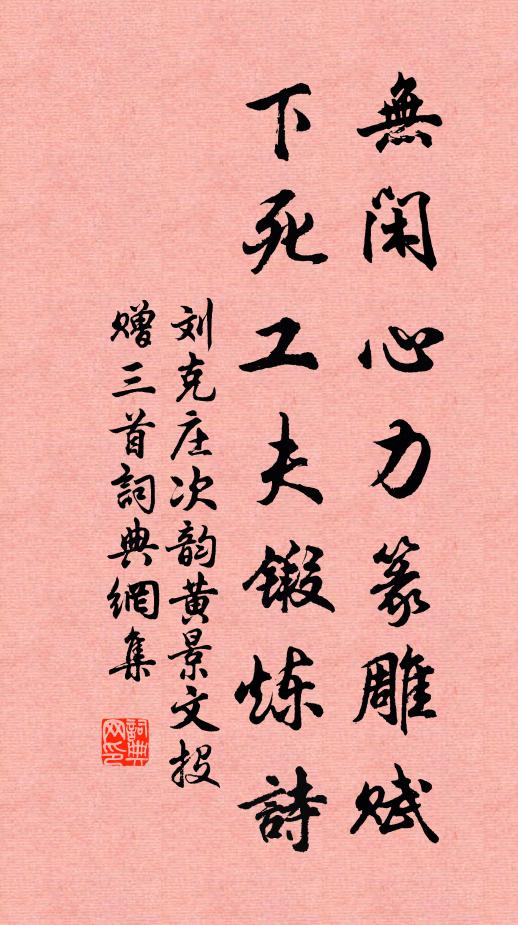 無閑心力篆雕赋
下死工夫锻炼詩
刘克庄次韵黄景文投
赠三首詞典網集
詞典網印